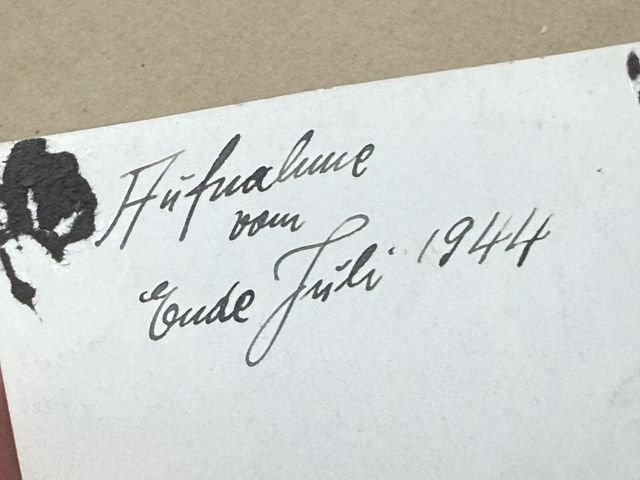 Aufnahme
vom
Ende Juli 1944